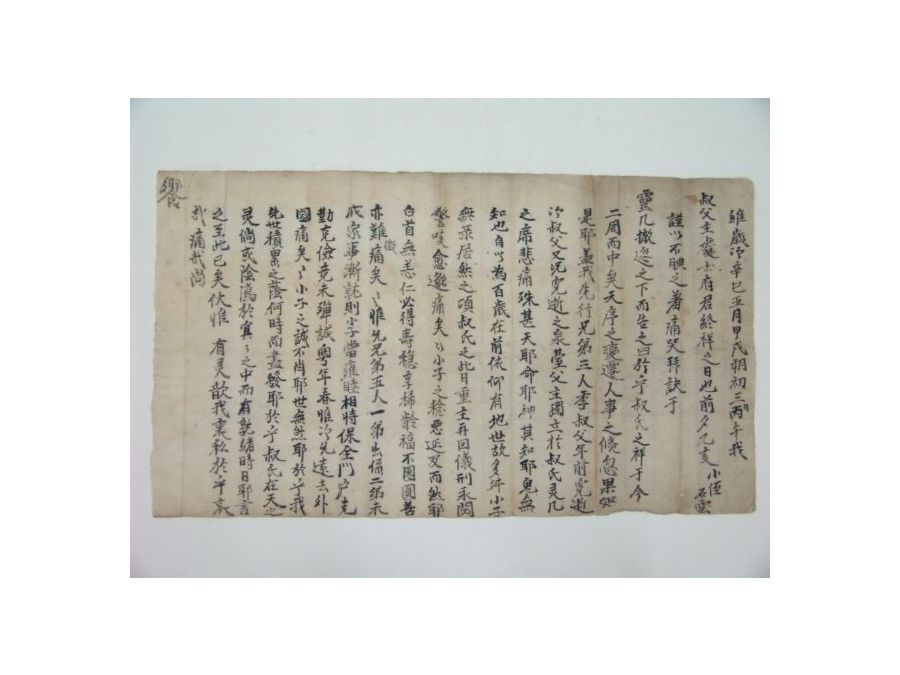 維歲次辛巳五月甲戌朔初三日丙午我
叔父主處士府君終祥之日也前夕乙亥小侄石雲
謹以不腆之羞痛哭拜訣于
靈几撤筵之下而告之曰於乎叔氏之祥于今
二周而中矣天序之變遷人事之倏忽果如
是耶盖我先行兄弟三人季叔父年前
叔父又况之父主獨立於叔氏灵几
之席悲痛殊甚天耶命耶神其知耶鬼無
知也自以為百歲在前依仰有地世故多舛小子
無祿居然之頃叔氏之此日重主再回儀刑永閟
警咳愈邈痛矣〻小子之積惡延及而然耶
白首無恙仁必得壽穩享稀齡福不圖圓善
亦難徵痛矣〻惟先兄弟五人一弟出係二弟未
成家事漸就則小子當雍睦相時保全門户克
勤克儉竟未殫誠年春惟先遠去外
國痛矣〻小子之誠不肖耶世無然耶於乎我
先世積累之蔭何時而盡發耶於乎叔氏在天之
灵倘或陰騭於冥〻之中而有時日耶言
之至此已矣伏惟 有灵歆我衷於乎哀
哉痛哉尚
饗